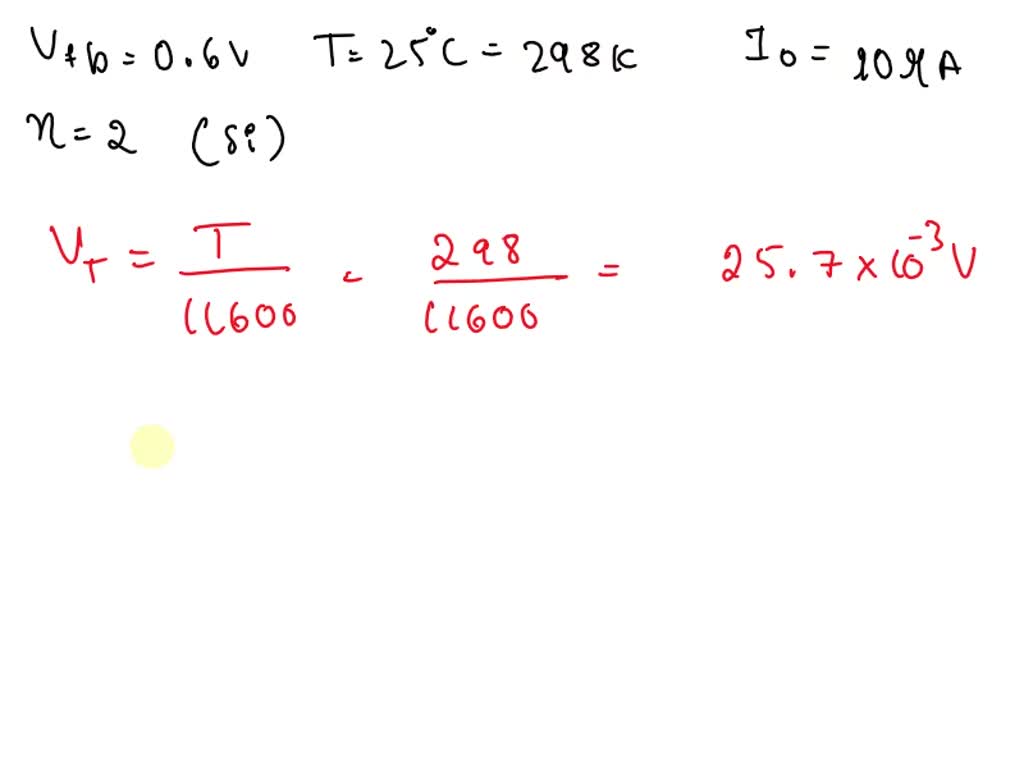 V_fb = 0.6V T = 25°C = 298K I_0 = 10μA
η = 2 (Si)
V_T = T/11600 = 298/11600 = 25.7 × 10^-3 V